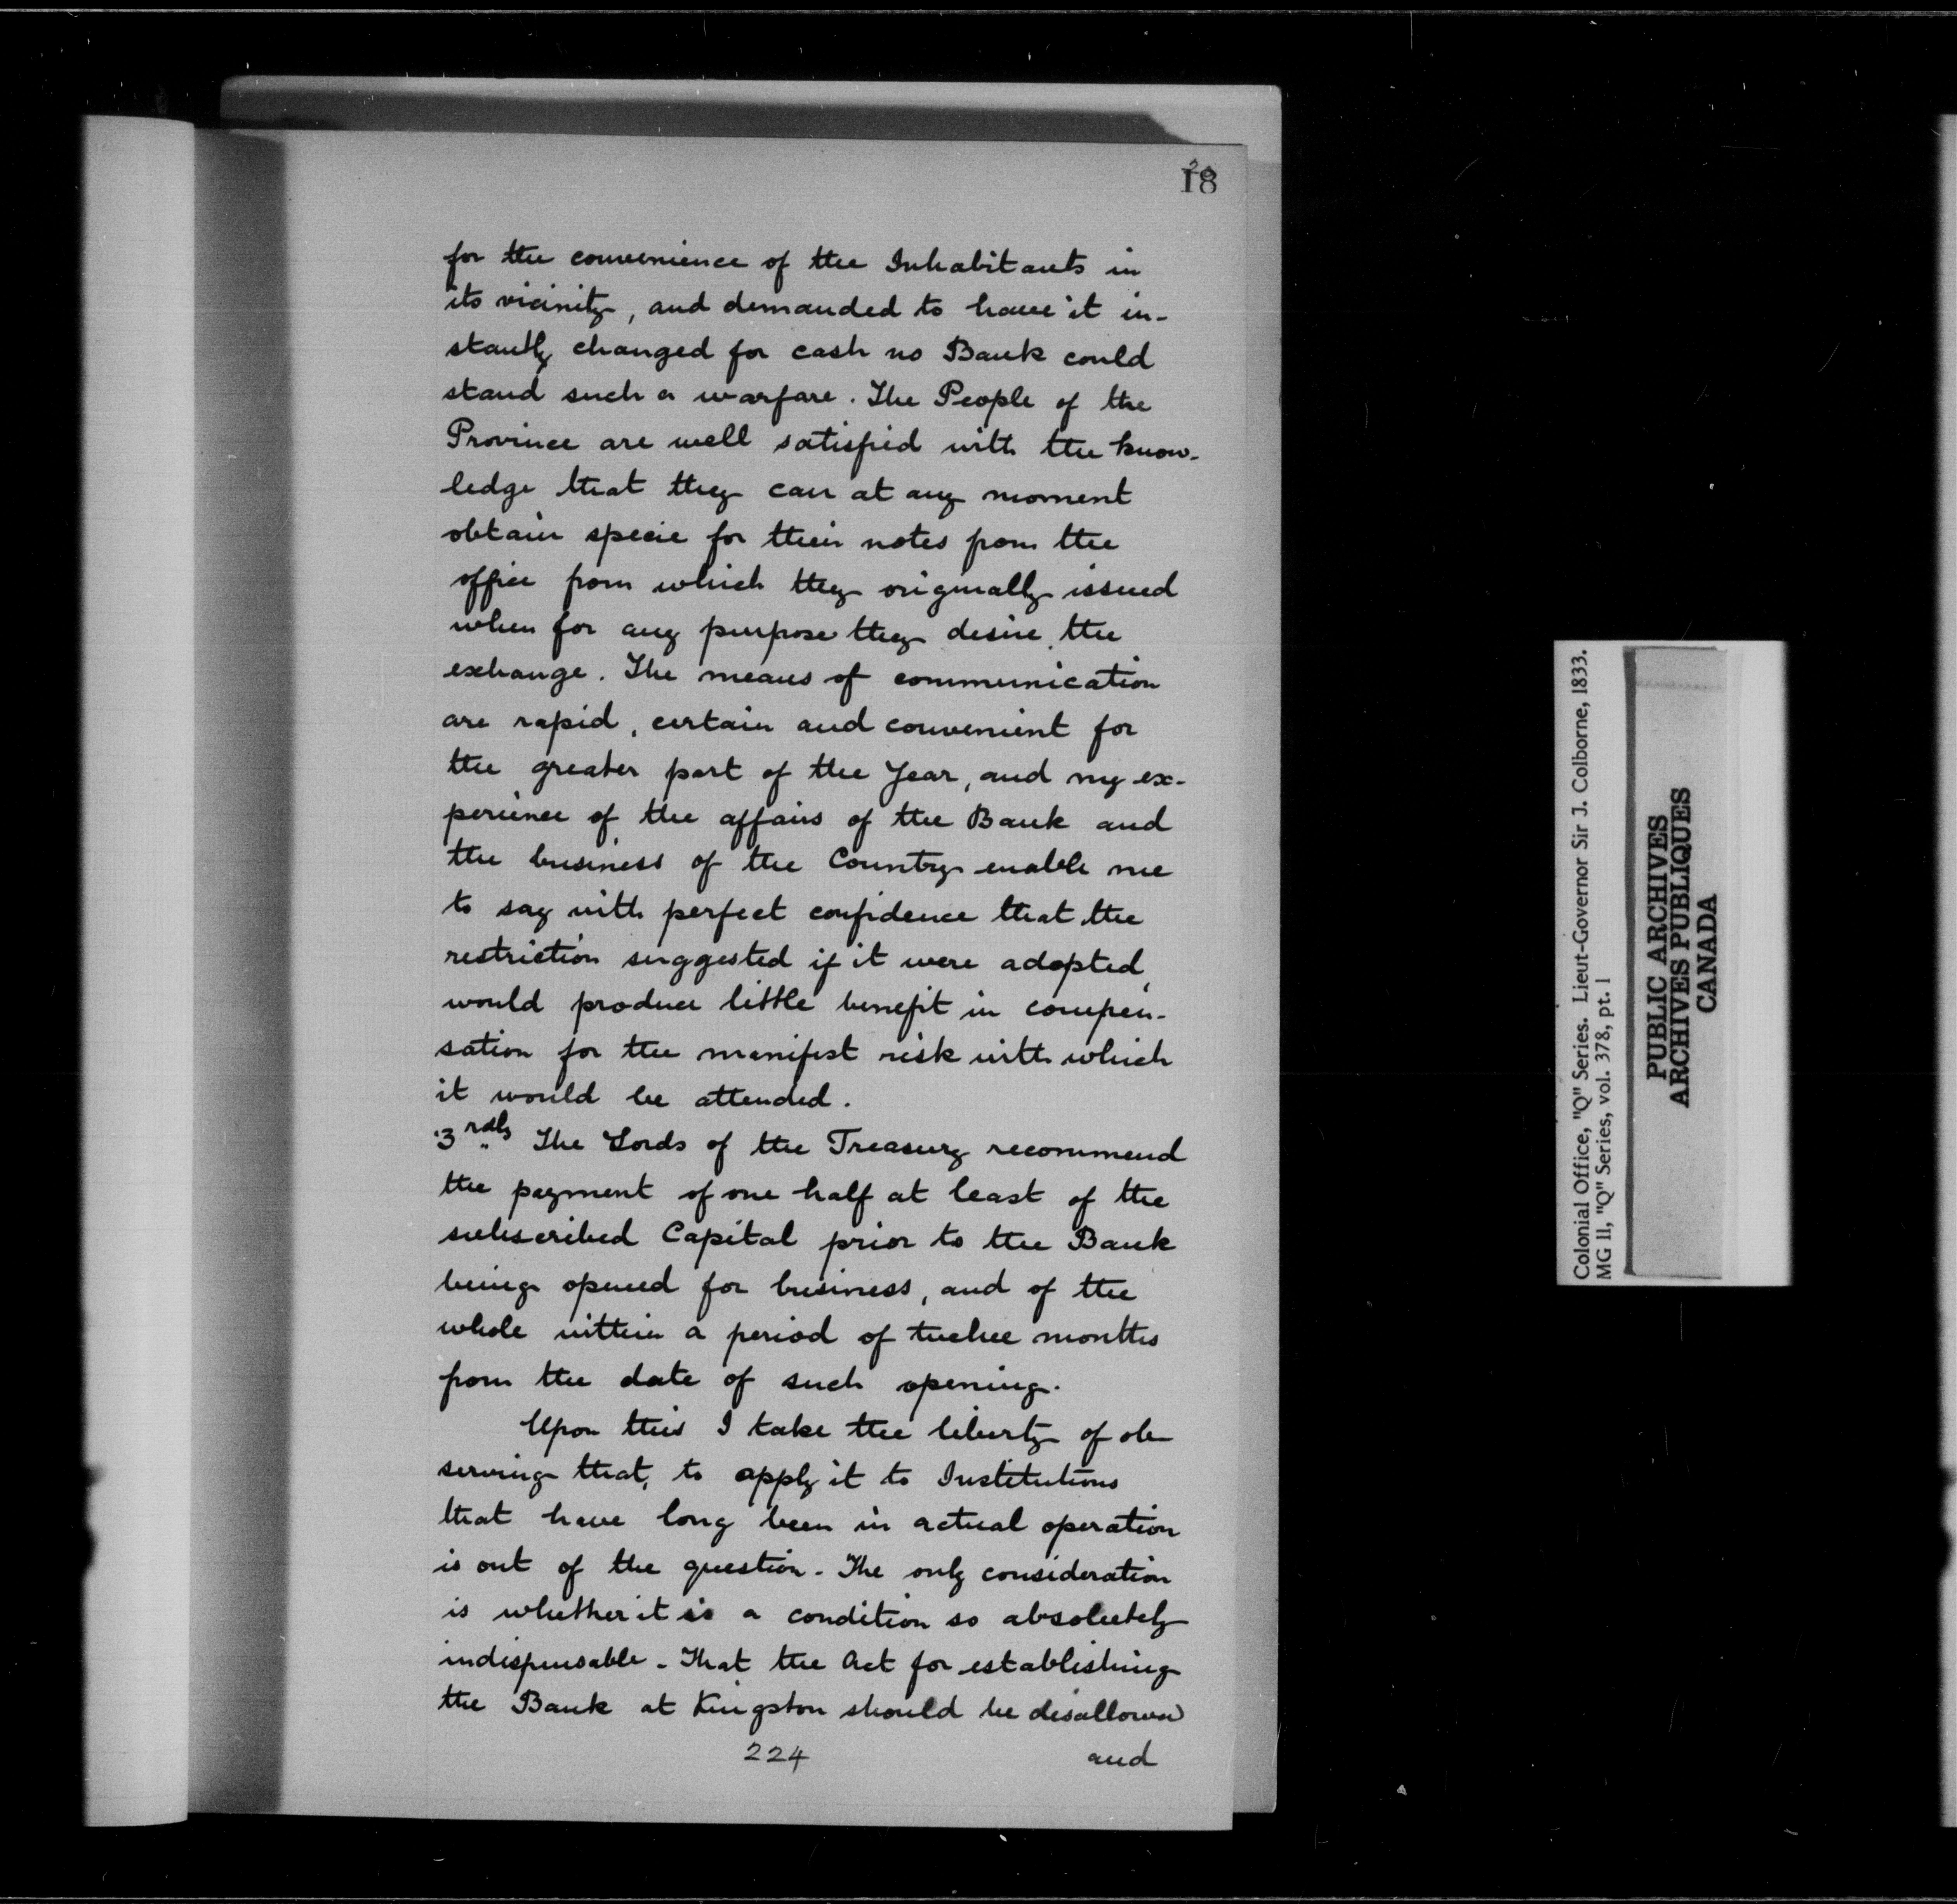 18
for the convenience of the Inhabitants in
its vicinity, and demanded to have it in-
stantly changed for cash no Bank could
stand such a warfare. The People of the
Province are well satisfied with the know-
ledge that they can at any moment
obtain specie for their notes from the
office from which they originally issued
when for any purpose they desire the
exchange. The means of communication
are rapid, certain and convenient for
the greater part of the Year, and my ex-
perience of the affairs of the Bank and
the business of the Country enable me
to say with perfect confidence that the
restriction suggested if it were adopted,
would produce little benefit in compen-
sation for the manifest risk with which
it would be attended.
3rdly The Lords of the Treasury recommend
the payment of one half at least of the
subscribed Capital prior to the Bank
being opened for business, and of the
whole within a period of twelve months
from the date of such opening.
Upon this I take the liberty of ob
serving that, to apply it to Institutions
that have long been in actual operation
is out of the question. The only consideration
is whether it is a condition so absolutely
indispensable. That the Act for establishing
the Bank at Kingston should be disallowed
224 and
Colonial Office, "Q" Series. Lieut-Governor Sir J. Colborne, 1833.
MG 11, "Q" Series, vol. 378, pt. 1
PUBLIC ARCHIVES
ARCHIVES PUBLIQUES
CANADA